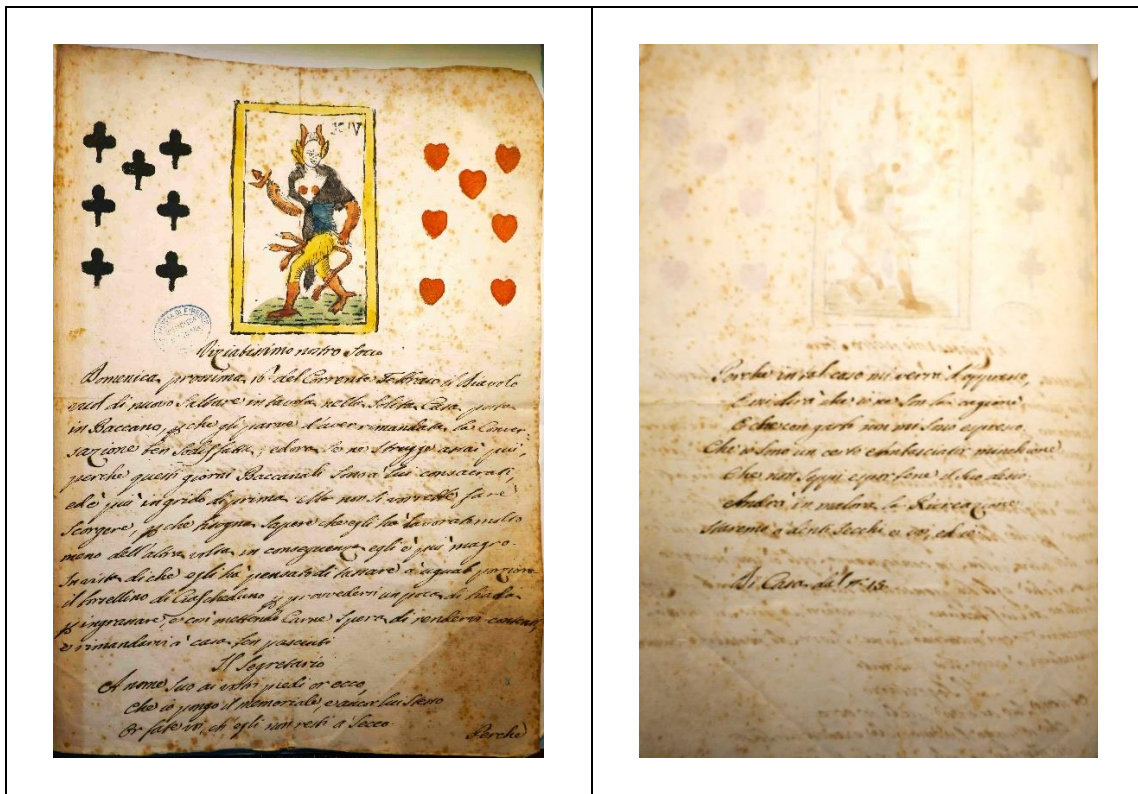 XIV
Viziatissimo nostro Socio
Domenica prossima 16 del Corrente Febbraio il Diavolo
vuol di nuovo Saltare in tavola nella Solita Casa posta
in Baccano, che gli parve d'aver rimandata la Conver-
sazione ben Sodisfatta, ed ora Se ne Strugge assai più,
perche questi giorni Baccanali Sono a lui consacrati,
ed è più ingrido di prima ello non Si vorrebbe fare
Scorgere, che bisogna Sapere che egli ha lavorato molto
meno dell'altra volta in conseguenza egli è più magro
In vista di che egli ha pensato di tassare a ugual porzione
il borsellino di Ciascheduno provvedersi un poca di biada
ingrassare, e così mettendo Carne Spera di rendervi contenti,
e rimandarvi à casa ben pasciuti
Il Segretario
A nome Suo ai vostri piedi or ecco
Che io pongo il memoriale, e ancor lui Steso
Or fate voi, ch'egli non resti a Secco
Perchè
Perchè in tal caso mi verrà d'appresso,
E mi dirà che io ne Son la cagione
E che con garbo non mi Sono espresso
Che Sono un certo
Che non Seppi espor bene il Suo
Andrà in malora la Ricreazione
Staremo a denti Secchi
Di Casa 13